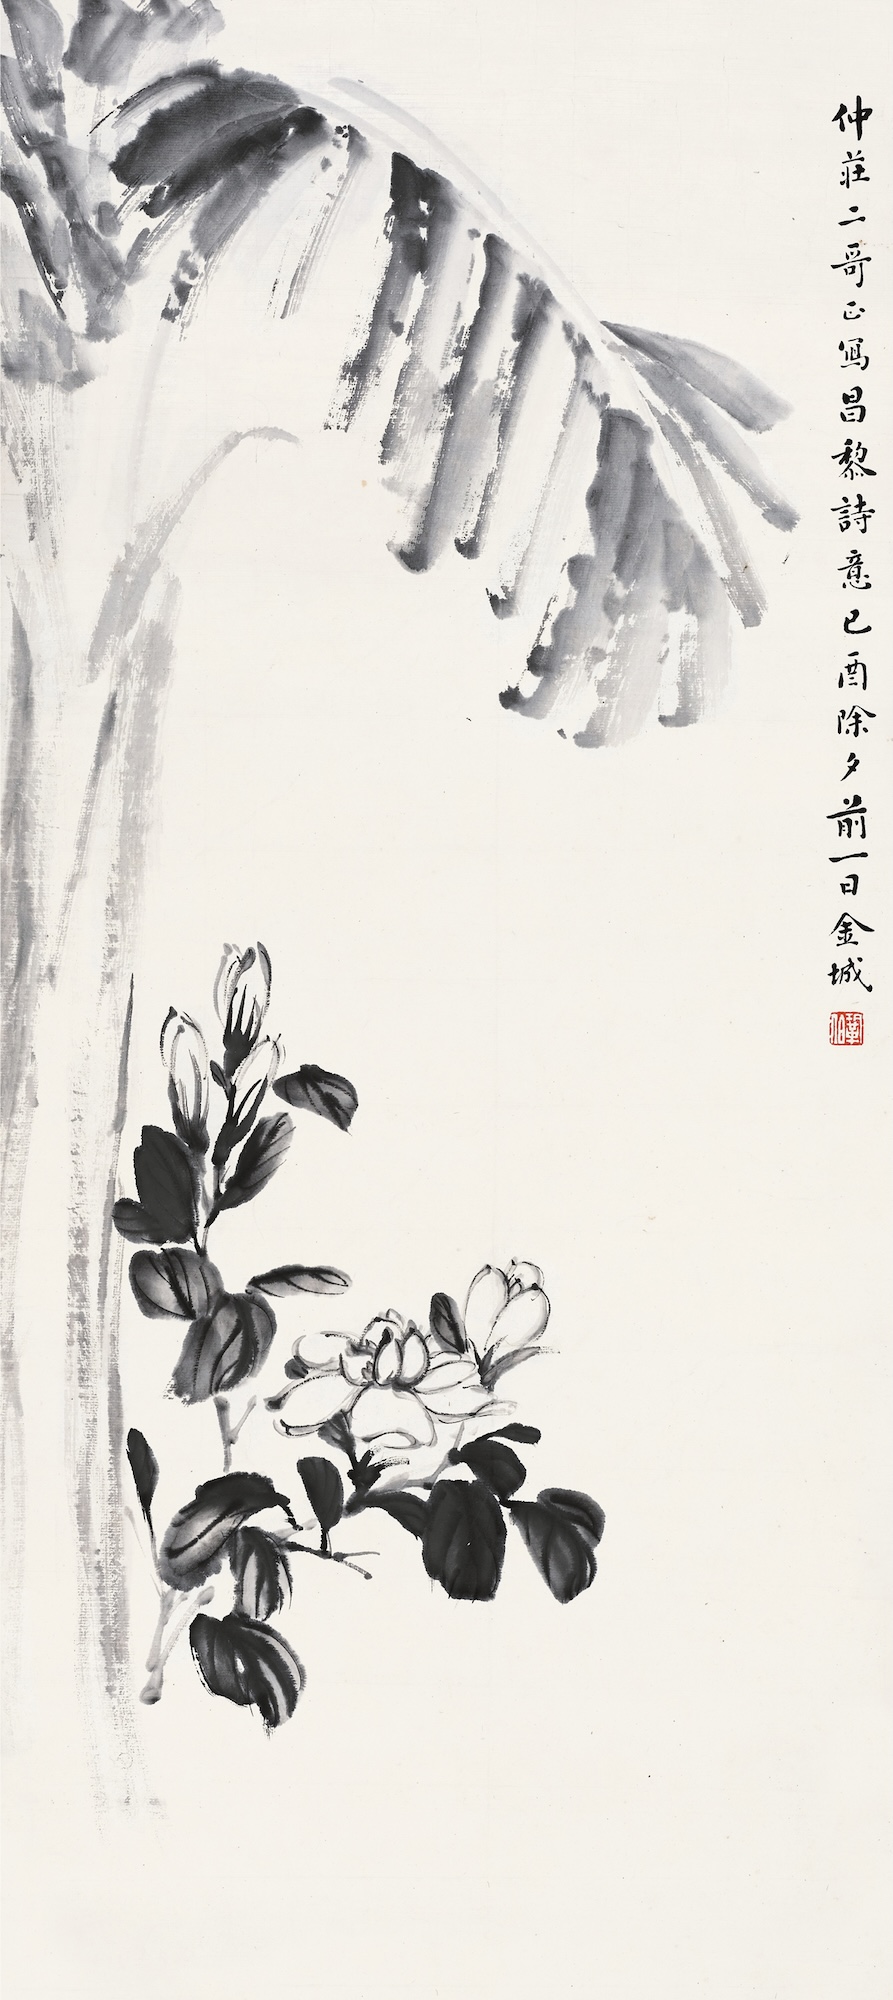 仲莊二哥正寫昌黎詩意己酉除夕前一日金城
鞏伯